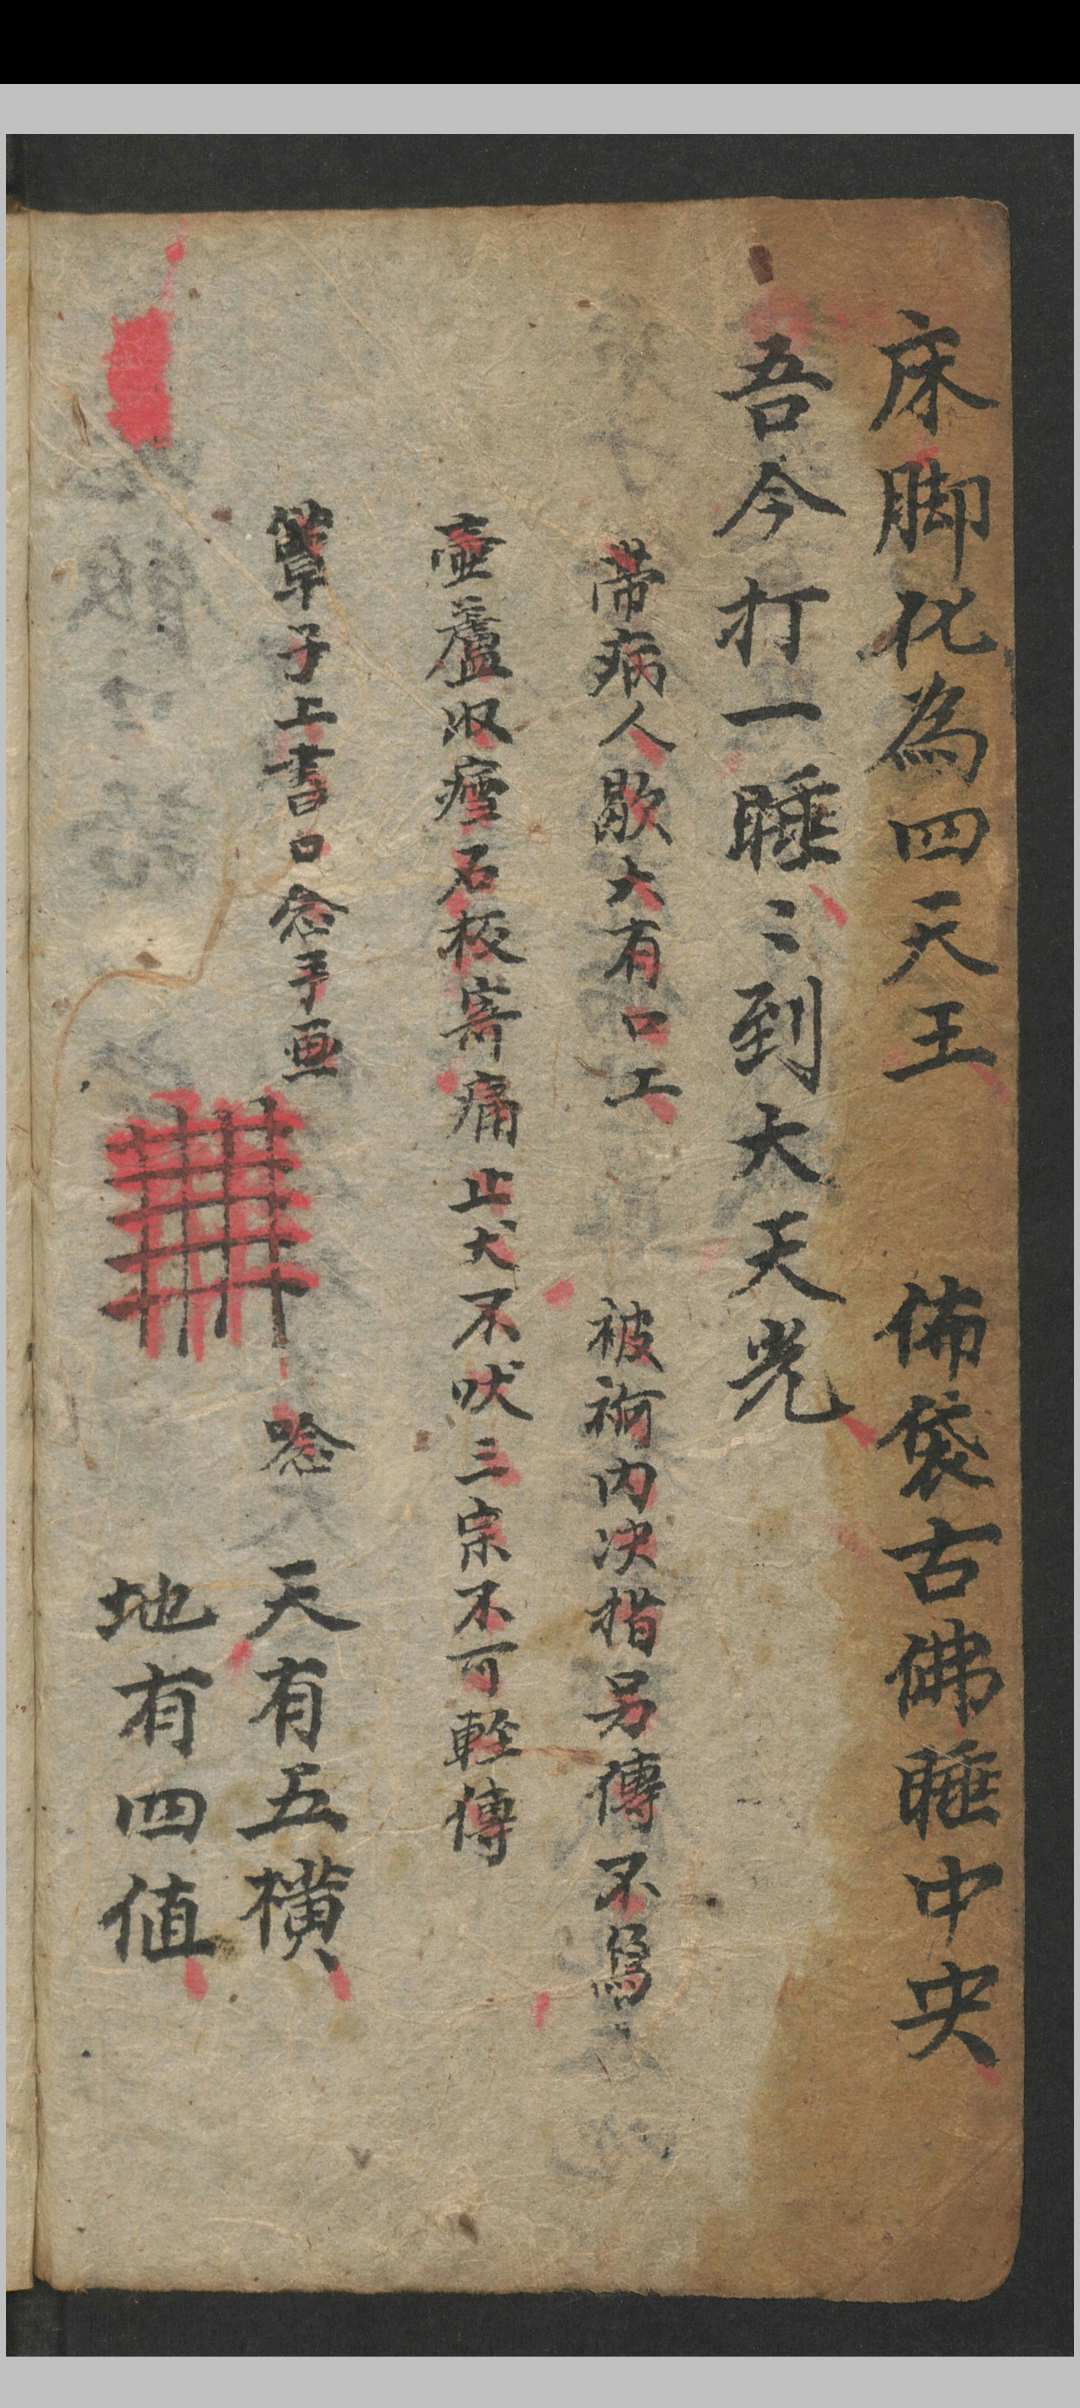 床脚化為四天王 佈袋古佛睡中央
吾今打一睡〻到大天光
帶病人歇大有口工 被衲内决指另傳不寫
壺蘆收瘂石板寄痛止犬不吠三宗不可輕傳
子上書口念手画 唸 天有五橫
地有四值